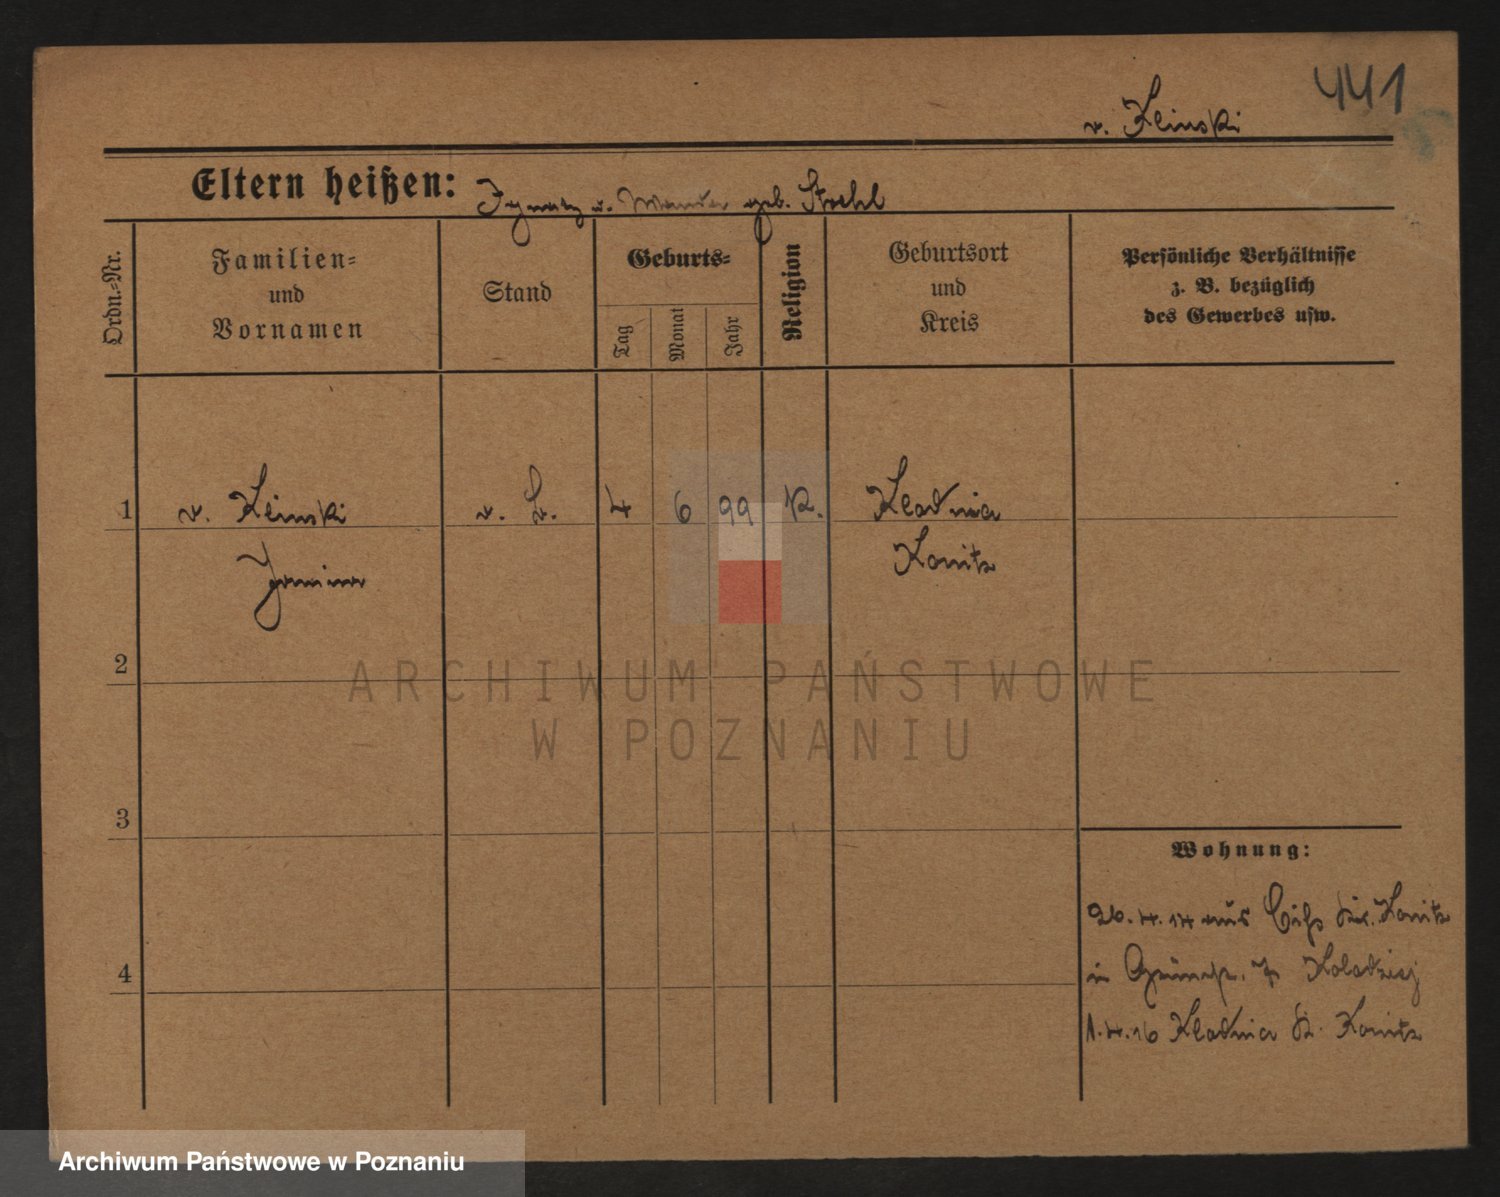 441
v. Klinski
Eltern heißen: Ignatz u. Wanda geb. Stoehl
Ordn.-Nr.
Familien-
und
Vornamen
Stand
Geburts-
Tag
Monat
Jahr
Religion
Geburtsort
und
Kreis
Persönliche Verhältnisse
z. B. bezüglich
des Gewerbes usw.
1 v. Klinski v. 4 6 99 K. Kladnia
Konitz
2
ARCHIWUM PAŃSTWOWE
W POZNANIU
3
Wohnung:
26.4.14 aus Kr. Konitz
4
in
1.4.16 Kladnia Kr. Konitz
Archiwum Państwowe w Poznaniu